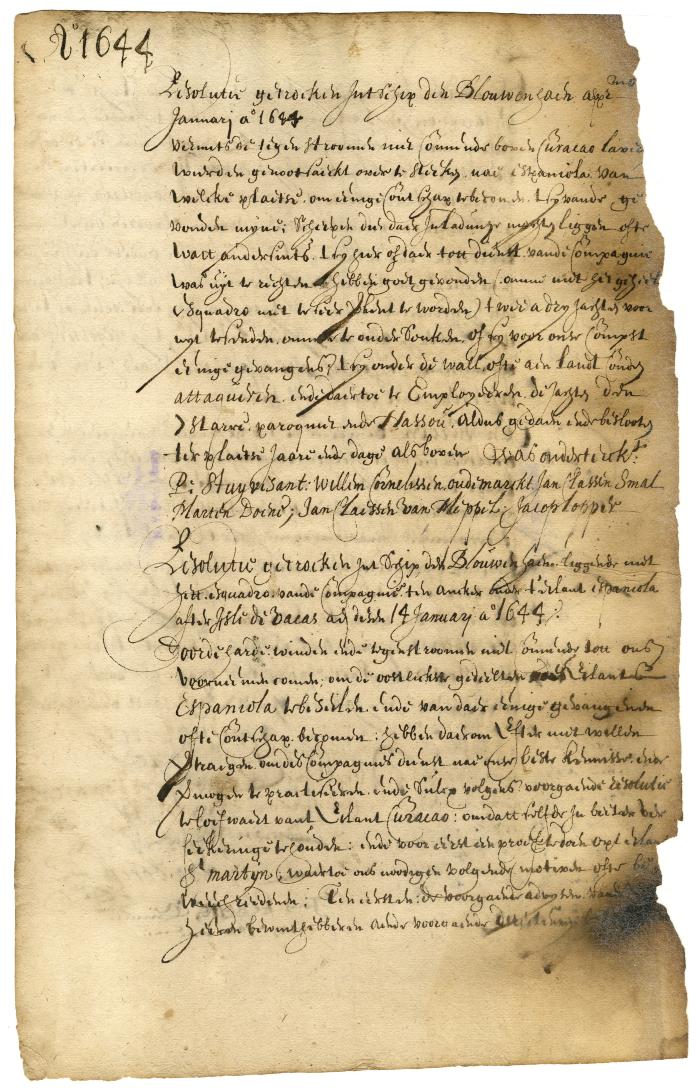 Ao 1644
Resolutie getrocken Int Schip den Blauwenhaen adij
Januarij ao 1644
vermits de tegen stroomen niet connende boven Curacao
werden genootsaeckt over te steecken nae espaniola van
welcke plaetse om eenige contschap te becomen t sy vande ge
vonden mijne, Schepen die daer In ladinge mochten liggen ofte
watt andersints t sy hier of daer tott dienst vande Compagnie
was uijt te rechten hebben goet gevonden (omme niet het geheele
Esquadro niet te seer te worden) twee a dry Jachten voor
uyt te senden omme te ondersoucken of sy voor onse compst
eenige gevangens t sy onder de wall ofte aen land conden
attaqueren ende daer toe te Employeeren de Jachten den
Starre paroquiet ende Nassou Aldus gedaen ende beslooten
ter plaetse Jaare ende dage als boven Was onderteekt
P: Stuyvesant: Willem Cornelissen oudemarckt Jan Claessen Smal
Marten Doene; Jan Claessen van Meppel; Jacop Lopper
Resolutie getrocken Int Schip den Blouwen haen liggende met
hett esquadro vande Compagnie ten Ancker onder t eilant espaniola
after Isle de Bacas adij desen 14 Januarij ao 1644
Door de harde winden ende tegenstroomen niet connende tott ons
voornemen comen, om de oostlickste gedeelten Eilant
Espaniola te beseilen ende van daer eenige gevangenen
ofte contschap becomen: hebben daerom Efter niet willen
om des Compagnies dienst nae onse beste kennisse
mogen te practiseeren ende sulcx volgens voorgaende resolutie
te loefwaert vant Eilant Curacao: omdatt selfde In beeter ver
seeckeringe te houden: ende voor eerst een proef te doen opt eilant
St martijn, waertoe ons noodigen volgende motiven ofte be
weech reedenen; Ten eersten: de voorgaende advysen vande
heeren bewinthebberen ende voorgaende